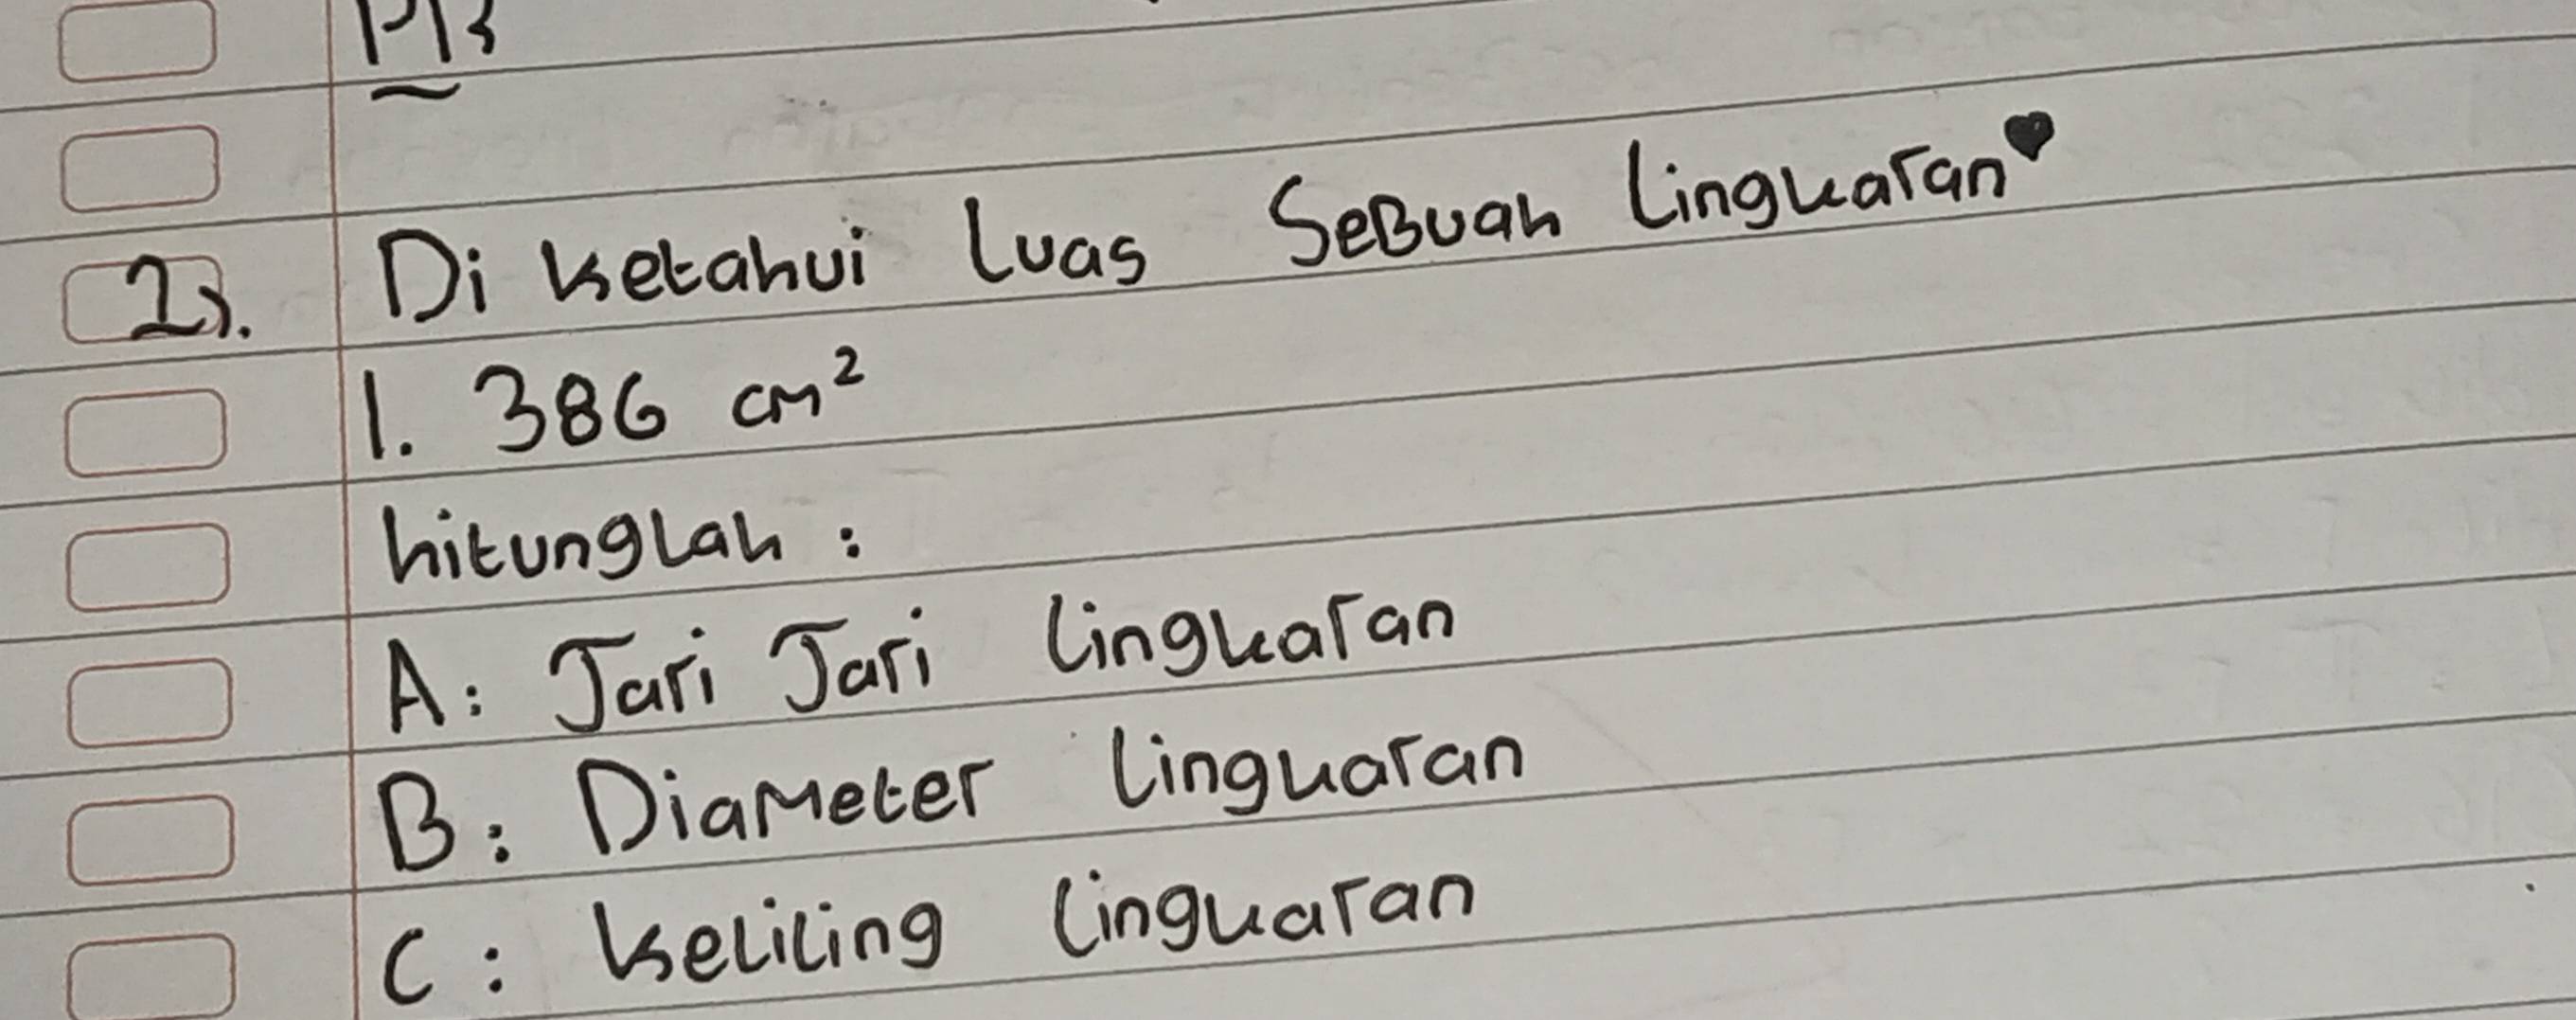 2).
Di ketahui Luas SeBuah Lingkaran
1. 386 cm²
hitungLah :
A: Jari Jari Lingkaran
B: DiaMeter Lingkaran
C: keLiLing Lingkaran